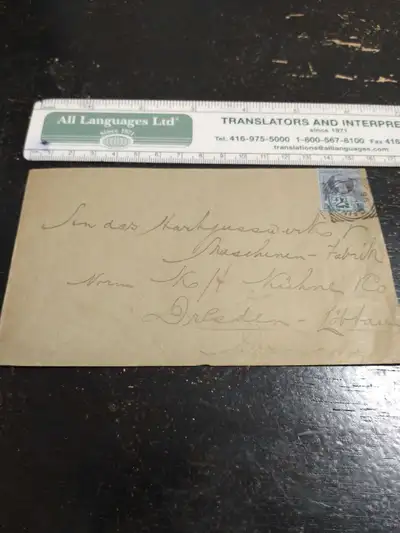 All Languages Ltd®
since 1971
TRANSLATORS AND INTERPRE
since 1971
Tel: 416-975-5000 1-800-567-8100 Fax 416
translations@alllanguages.com
2½
An das Hartgusswerk &
Maschinen-Fabrik
Norm K/H Kühne & Co
Dresden - Löbtau